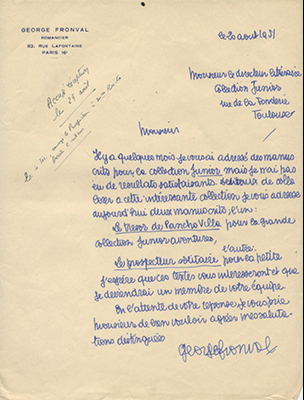 GEORGE FRONVAL
ROMANCIER
63, RUE LAFONTAINE
PARIS 16e
le 20 aout 1951
Monsieur le directeur littéraire
collection Junior
rue de la Fonderie
Toulouse
Monsieur
Il y a quelques mois je vous ai adressé des manus
crits pour la collection Junior mais je n'ai pas
eu de resultats satisfaisants. Désireux de colla
borer a cette interessante collection je vous adresse
aujourd'hui deux manuscrits; l'un:
Le tresor de Pancho Villa pour la grande
collection Junior aventures,
l'autre:
Le prospecteur solitaire pour la petite
J'espère que ces textes vous interesseront et que
je deviendrai un membre de votre équipe.
En l'attente de votre reponse je vous prie
monsieur de bien vouloir agréer mes saluta-
tions distinguées
George Fronval
Accusé réception
le 28 août